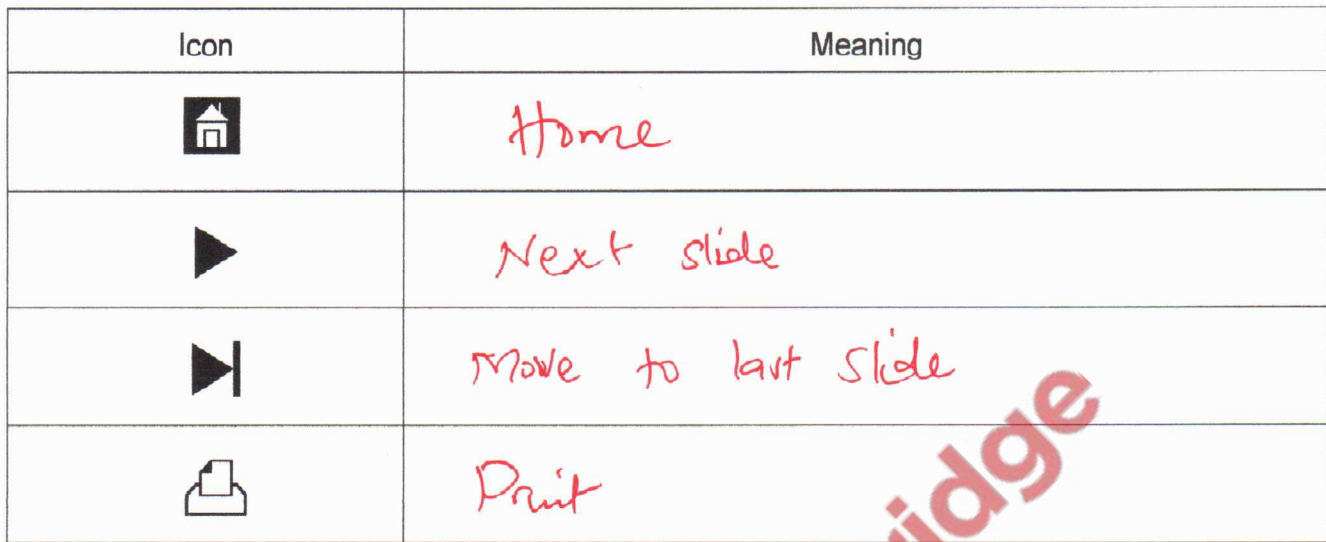 Icon Meaning
Home
Next slide
Move to last slide
Print
idge